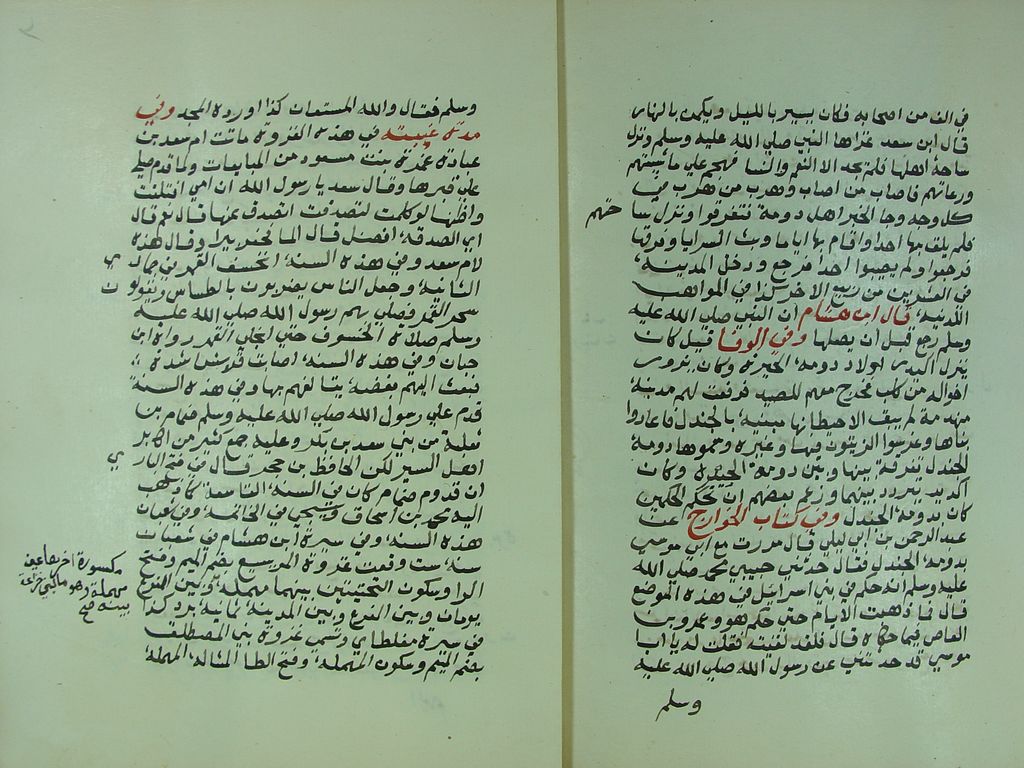 في الف من اصحابه فكان يسير بالليل ويكمن بالنهار
قال ابن سعد غزاها النبي صلي الله عليه وسلم ونزل
ساحة اهلها فلم يجد الا النعم والشا فهجم علي ماشيتهم
ورعاتهم فاصاب من اصاب وهرب من هرب في
كل وجه وجا الخبر اهل دومة فتفرقوا ونزل بسا
حتهم
فلم يلق بها احدا واقام بها اياما وبث السرايا وفرقها
فرجعوا ولم يصيبوا احدا فرجع ودخل المدينة
في العشرين من ربيع الاخر كذا في المواهب
اللدنية قال ابن هشام ان النبي صلي الله عليه
وسلم رجع قبل ان يصلها وفي الوفا قيل كان
ينزل اكيدر اولا دومة الحيرة وكان يزور
اخواله من كلب فخرج معهم للصيد فرفعت لهم مدينة
منهدمة لم يبق الا حيطانها مبنية بالجندل فاعادوا
بناها وغرسوا الزيتون فيها وغيره وسموها دومة
الجندل تفرقة بينها وبين دومة الحيرة وكان
اكيدر يتردد بينهما وزعم بعضهم ان تحكيم الحكمين
كان بدومة الجندل وفي كتاب الخوارج عن
عبد الرحمن بن ابي ليلي قال مررت مع ابي موسي
بدومة الجندل فقال حدثني حبيبي محمد صلي الله
عليه وسلم انه حكم في بني اسرائيل في هذه الموضع
قال فما ذهبت الايام حتي حكم هو وعمرو بن
العاص فيما حكماه قال فلقد لقيته فقلت له يا ابا
موسي قد حدثتني عن رسول الله صلي الله عليه
وسلم
وسلم فقال والله المستعان كذا اورده المجد وفي
مدة غيبته في هذه الغزوة ماتت ام سعد بن
عبادة عمرة بنت مسعود من المبايعات ولما قدم صلي
علي قبرها وقال سعد يا رسول الله ان امي افتلتت
واظنها لو تكلمت لتصدقت اتصدق عنها قال نعم قال
اي الصدقة افضل قال الما فحفر بيرا وقال هذه
لام سعد وفي هذه السنة انخسف القمر في جمادي
الثانية وجعل الناس يضربون بالطساس ويقولون
سحر القمر فصلي بهم رسول الله صلي الله عليه
وسلم صلاة الخسوف حتي انجلي القمر رواه ابن
حبان وفي هذه السنة اصابت قريشا شدة
فبعث اليهم بفضة يتالفهم بها وفي هذه السنة
قدم علي رسول الله صلي الله عليه وسلم ضمام بن
ثعلبة من بني سعد بن بكر وعليه جمع كثير من اكابر
اهل السير لكن الحافظ بن حجر قال في فتح الباري
ان قدوم ضمام كان في السنة التاسعة كما ذهب
اليه محمد بن اسحاق وسيجي في الخاتمة وفي شعبان
هذه السنة وفي سيرة ابن هشام في شعبان
سنة ست وقعت غزوة المريسيع بضم الميم وفتح
الرا وسكون التحتيتين بينهما مهملة وبين الفرع
مكسورة اخرها عين
مهملة وهو ما لبني خزاعة
بينه صح
يومان وبين الفرع وبين المدينة ثمانية برد كذا
في سيرة مغلطاي وتسمي غزوة بني المصطلق
بضم الميم وسكون المهملة وفتح الطا المشالة المهملة